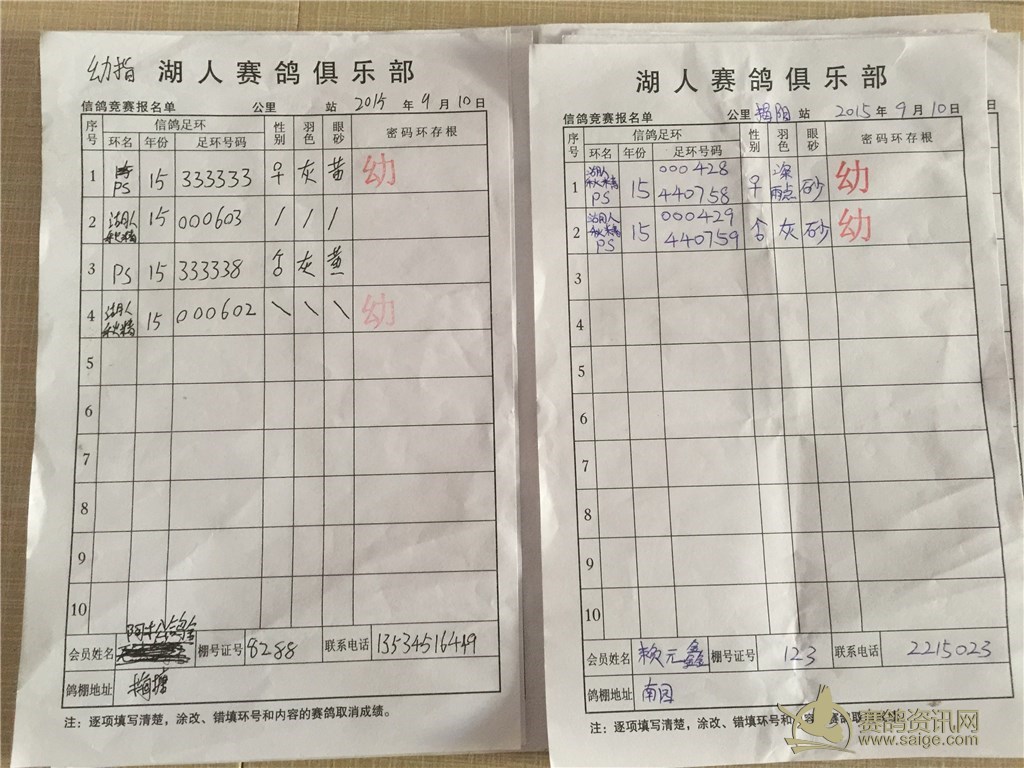 幼指 湖人赛鸽俱乐部
信鸽竞赛报名单 公里 站 2015 年 9 月 10 日
序号 信鸽足环 性别 羽色 眼砂 密码环存根
环名 年份 足环号码
1 PS 15 333333 早 灰 黄 幼
2 湖人 15 000603 / / /
3 PS 15 333338 灰 黄
4 湖人 15 000602 \ \ \ 幼
5
6
7
8
9
10
会员姓名 棚号证号 8288 联系电话 13534516449
鸽棚地址 梅塘
注：逐项填写清楚，涂改、错填环号和内容的赛鸽取消成绩。
湖人赛鸽俱乐部
信鸽竞赛报名单 公里 揭阳 站 2015 年 9 月 10 日
序号 信鸽足环 性别 羽色 眼砂 密码环存根
环名 年份 足环号码
湖人 000428
1 PS 15 440758 深雨点 砂 幼
湖人 000429
2 PS 15 440759 灰 砂 幼
3
4
5
6
7
8
9
10
会员姓名 赖元鑫 棚号证号 123 联系电话 2215023
鸽棚地址 南园
注：逐项填写清楚，涂改、错填环号和内容的赛鸽取消成绩。
赛鸽资讯网
www.saige.com